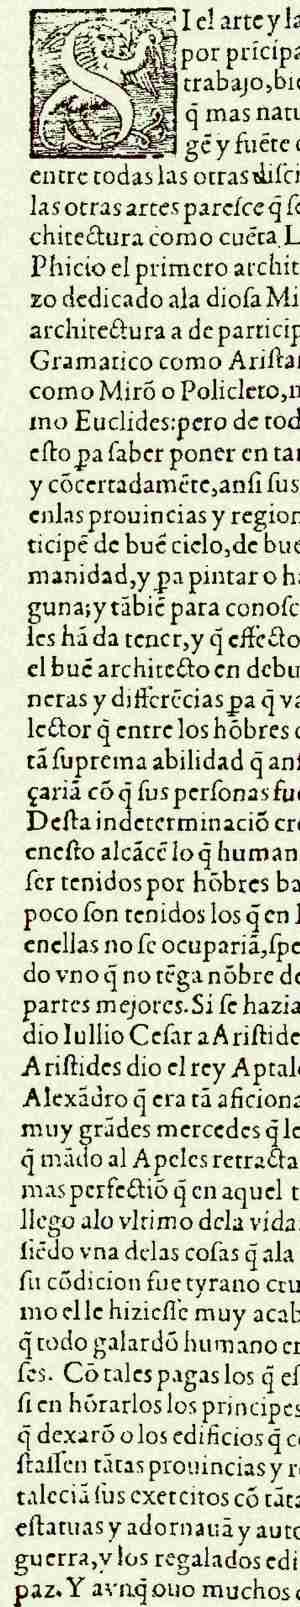 SI el arte y la
por prīcipa
trabajo, bie
q̄ mas natu
gē y fuēte
entre todas las otras disci
las otras artes paresce q̄ se
chitectura como cuēta L
Phicio el primero archit
zo dedicado ala diosa Mi
architectura a de particip
Gramatico como Aristar
como Mirō o Policleto, n
mo Euclides: pero de tod
esto ꝑa saber poner en tan
y cōcertadamēte, ansi sus
enlas prouincias y region
ticipē de buē cielo, de bue
manidad, y ꝑa pintar o ha
guna; y tābiē para conosc
les hā da tener, y q̄ effecto
el buē architecto en debu
neras y differēcias ꝑa q̄ va
lector q̄ entre los hōbres
tā suprema abilidad q̄ ans
çariā cō q̄ sus personas fue
Desta indeterminaciō cre
enesto alcācē lo q̄ human
ser tenidos por hōbres ba
poco son tenidos los q̄ en
enellas no se ocupariā, spe
do vno q̄ no tēga nōbre de
partes mejores. Si se hazia
dio Iullio Cesar a Aristide
Aristides dio el rey Aptalo
Alexādro q̄ era tā aficiona
muy grādes mercedes q̄ le
q̄ mādo al Apeles retracta
mas perfectiō q̄ en aquel t
llego alo vltimo dela vida.
siēdo vna delas cosas q̄ ala
su cōdicion fue tyrano cru
mo el le hiziesse muy acab
q̄ todo galardō humano er
ses. Cō tales pagas los q̄ es
si en hōrarlos los principes
q̄ dexarō o los edificios q̄ co
stassen tātas prouincias y re
taleciā sus exercitos cō tāta
estatuas y adornauā y auto
guerra, y los regalados edi
paz. Y avnq̄ ouo muchos